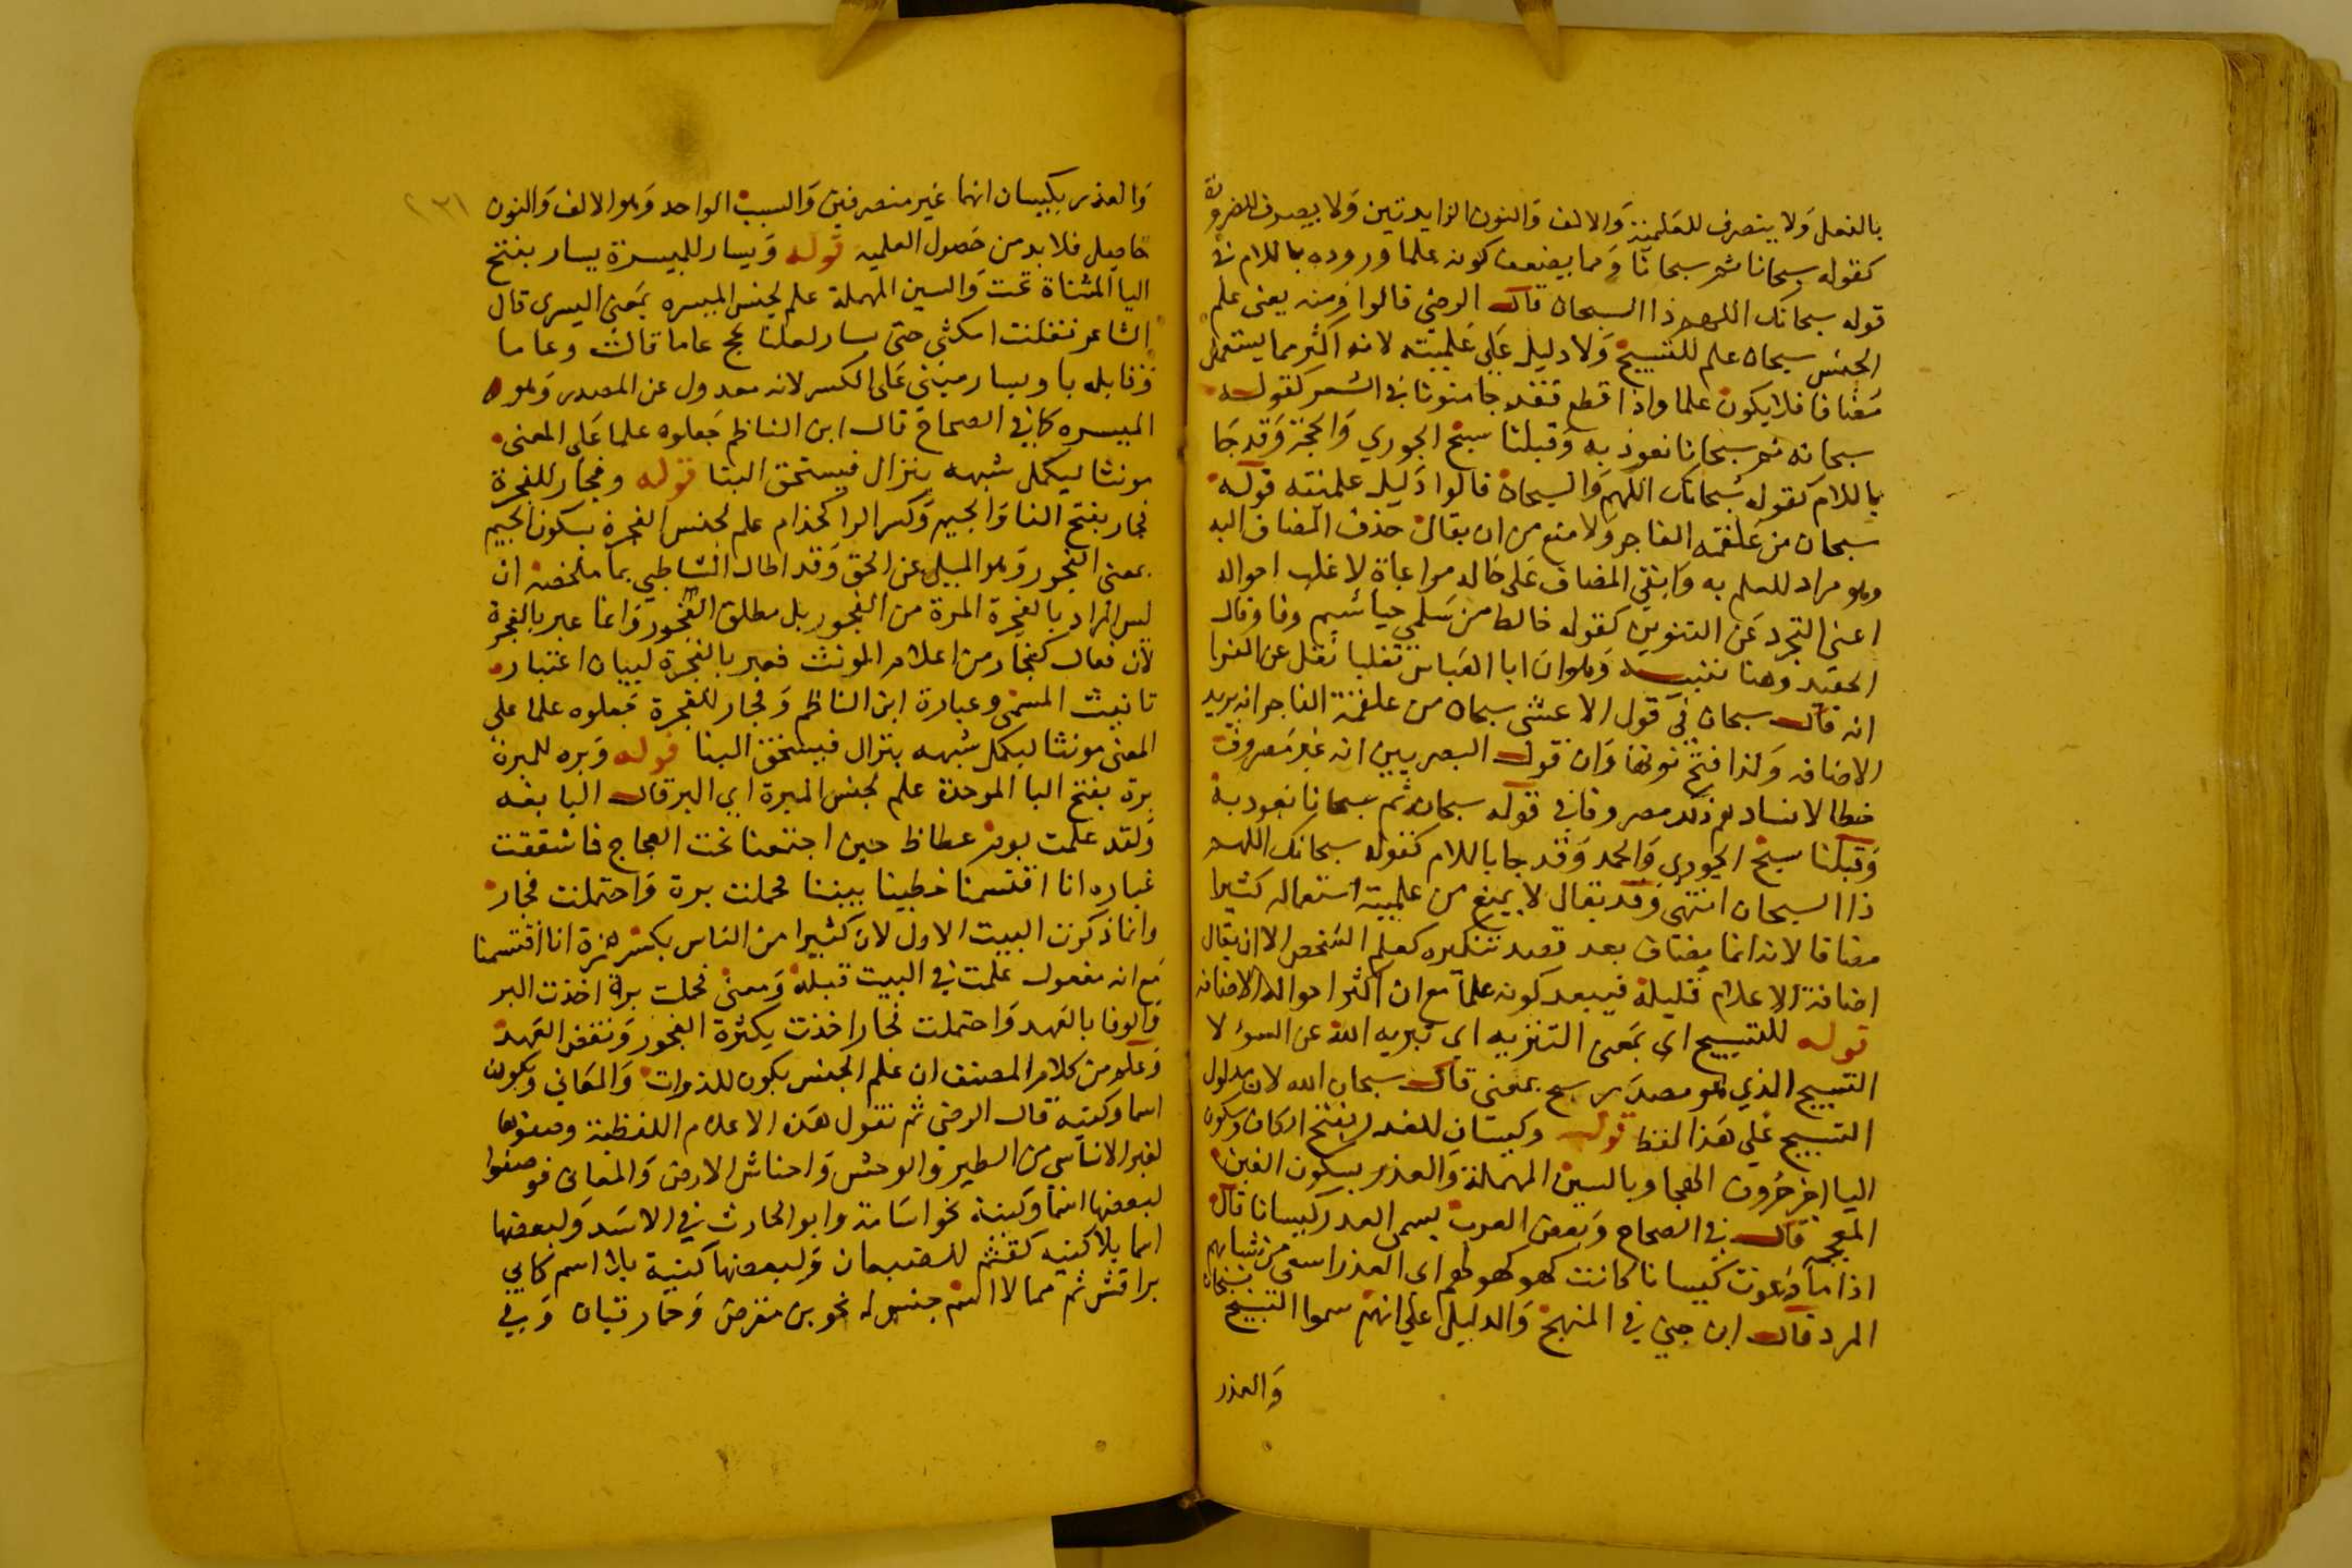 بالفعل ولا ينصرف للعلمية والالف والنون الزايدتين ولا يصرف للضرورة
كقوله سبحانا ثم سبحانا ومما يضعف كونه علما وروده باللام في
قوله سبحانك اللهم ذا السبحان قال الرضي قالوا ومنه يعني علم
الجنس سبحان علم للتسبيح ولا دليل على علميته لانه اكثر مما يستعمل
مضافا فلا يكون علما واذا قطع فقد جا منونا في الشعر كقوله
سبحانه ثم سبحانا نعوذ به وقبلنا سبح الجودي والجمد وقد جا
باللام كقوله سبحانك اللهم ذا السبحان قالوا دليل علميته قوله
سبحان من علقمة الفاجر ولا منع من ان يقال حذف المضاف اليه
وهو مراد للعلم به وابقي المضاف على حاله مراعاة لاغلب احواله
اعني التجرد عن التنوين كقوله خالط من سلمي خياشيم وفا وقال
الحفيد وهنا تنبيه وهو ان ابا العباس ثعلبا نقل عن الفرا
انه قال سبحان في قول الاعشى سبحان من علقمة الفاجر انه يريد
الاضافه ولذا فتح نونها وان قول البصريين انه غير مصروف
خطا لانشادهم ذلك مصروفا في قوله سبحانه ثم سبحانا نعوذ به
وقبلنا سبح الجودي والجمد وقد جا باللام كقوله سبحانك اللهم
ذا السبحان انتهى وقد يقال لا يمنع من علميته استعماله كثيرا
مضافا لانه انما يضاف بعد قصد تنكيره كعلم الشخص الا ان يقال
اضافة الاعلام قليلة فيبعد كونه علما مع ان اكثر احواله الاضافه
قوله للتسبيح اي بمعنى التنزيه اي تبريه الله عن السوء لا
التسبيح الذي هو مصدر سبح بمعني قال سبحان الله لان مدلول
التسبيح علي هذا لفظ قوله وكيسان للغدر بفتح الكاف وسكون
اليا اخر حروف الهجا وبالسين المهملة والغدر بسكون الغين
المعجمه قال في الصحاح وبعض العرب يسمى الغدر كيسانا قال
اذا ما دعوت كيسانا كانت كهولهم الى الغدر اسعى من شبابهم
المرد قال ابن جني في المنهج والدليل علي انهم سموا التسبيح بسبحان
والعذر
والعذر بكيسان انهما غير منصرفين والسبب الواحد وهو الالف والنون ٢٣١
حاصل فلا بد من حصول العلميه قوله ويسار للميسرة يسار بفتح
اليا المثناة تحت والسين المهملة علم لجنس الميسره بمعنى اليسرى قال
الشاعر فقلت امكثي حتى يسار لعلنا نحج عاما قالت وعاما
وقابله يا ويسار مبني على الكسر لانه معدول عن المصدر وهو
الميسره كما في الصحاح قال ابن الناظم جعلوه علما على المعنى
مونثا ليكمل شبهه بنزال فيستحق البنا قوله وفجار للفجرة
فجار بفتح الفا والجيم وكسر الرا كحذام علم لجنس الفجرة بسكون الجيم
بمعنى الفجور وهو الميل عن الحق وقد اطال الشاطبي بما ملخصه ان
ليس المراد بالفجرة المرة من الفجور بل مطلق الفجور وانما عبر بالفجرة
لان فعال كفجار من اعلام المونث فعبر بالفجرة لبيان اعتبار
تانيث المسمى وعبارة ابن الناظم وفجار للفجرة جعلوه علما علي
المعنى مونثا ليكمل شبهه بنزال فيستحق البنا قوله وبره للمبرة
برة بفتح البا الموحدة علم لجنس المبرة اي البر قال النابغه
ولقد علمت يوم عكاظ حين اجتمعنا تحت العجاج فما شققت
غباره انا اقتسمنا خطتينا بيننا فحملت برة واحتملت فجار
وانما ذكرت البيت الاول لان كثيرا من الناس بكسر همزة انا اقتسمنا
مع انه مفعول علمت في البيت قبله ومعنى فحملت برة اخذت البر
والوفا بالعهد واحتملت فجار اخذت بكثرة الفجور ونقض العهد
وعلم من كلام المصنف ان علم الجنس يكون للذوات والمعاني ويكون
اسما وكنيه قال الرضي ثم نقول هذه الاعلام اللفظية وضعوها
لغير الاناسي من الطير والوحش واحناش الارض والمعاني فوضعوا
لبعضها اسما وكنية نحو اسامة وابو الحارث في الاسد ولبعضها
اسما بلا كنيه كقثم للضبعان ولبعضها كنية بلا اسم كابي
براقش ثم مما لا اسم جنس له نحو بن مقرض وحمار قبان وفي